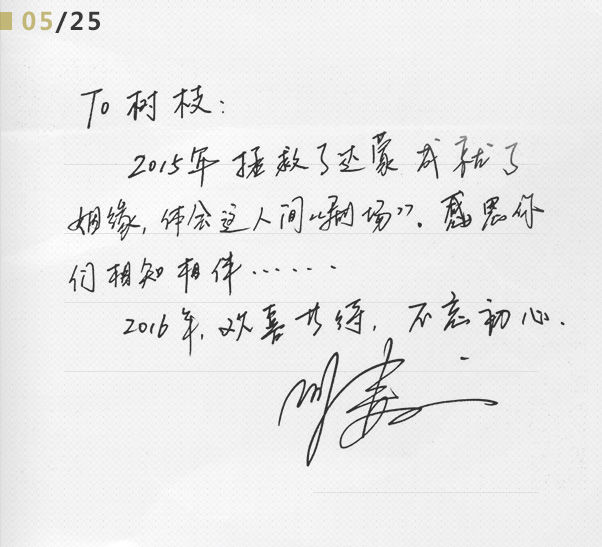 05/25
To 树枝:
2015年 拯救了达蒙 成就了
姻缘, 体会这人间“剧场”. 感恩你
们相知相伴......
2016年, 欢喜共, 不忘初心.